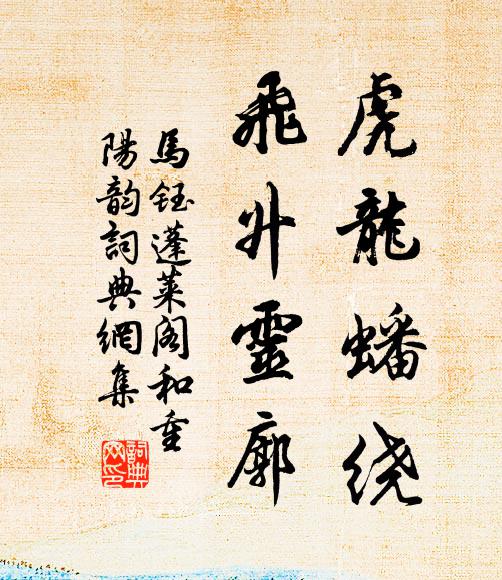 虎龍蟠绕
飛升靈廓
馬鈺蓬萊阁和重
陽韵詞典網集
詞典網印